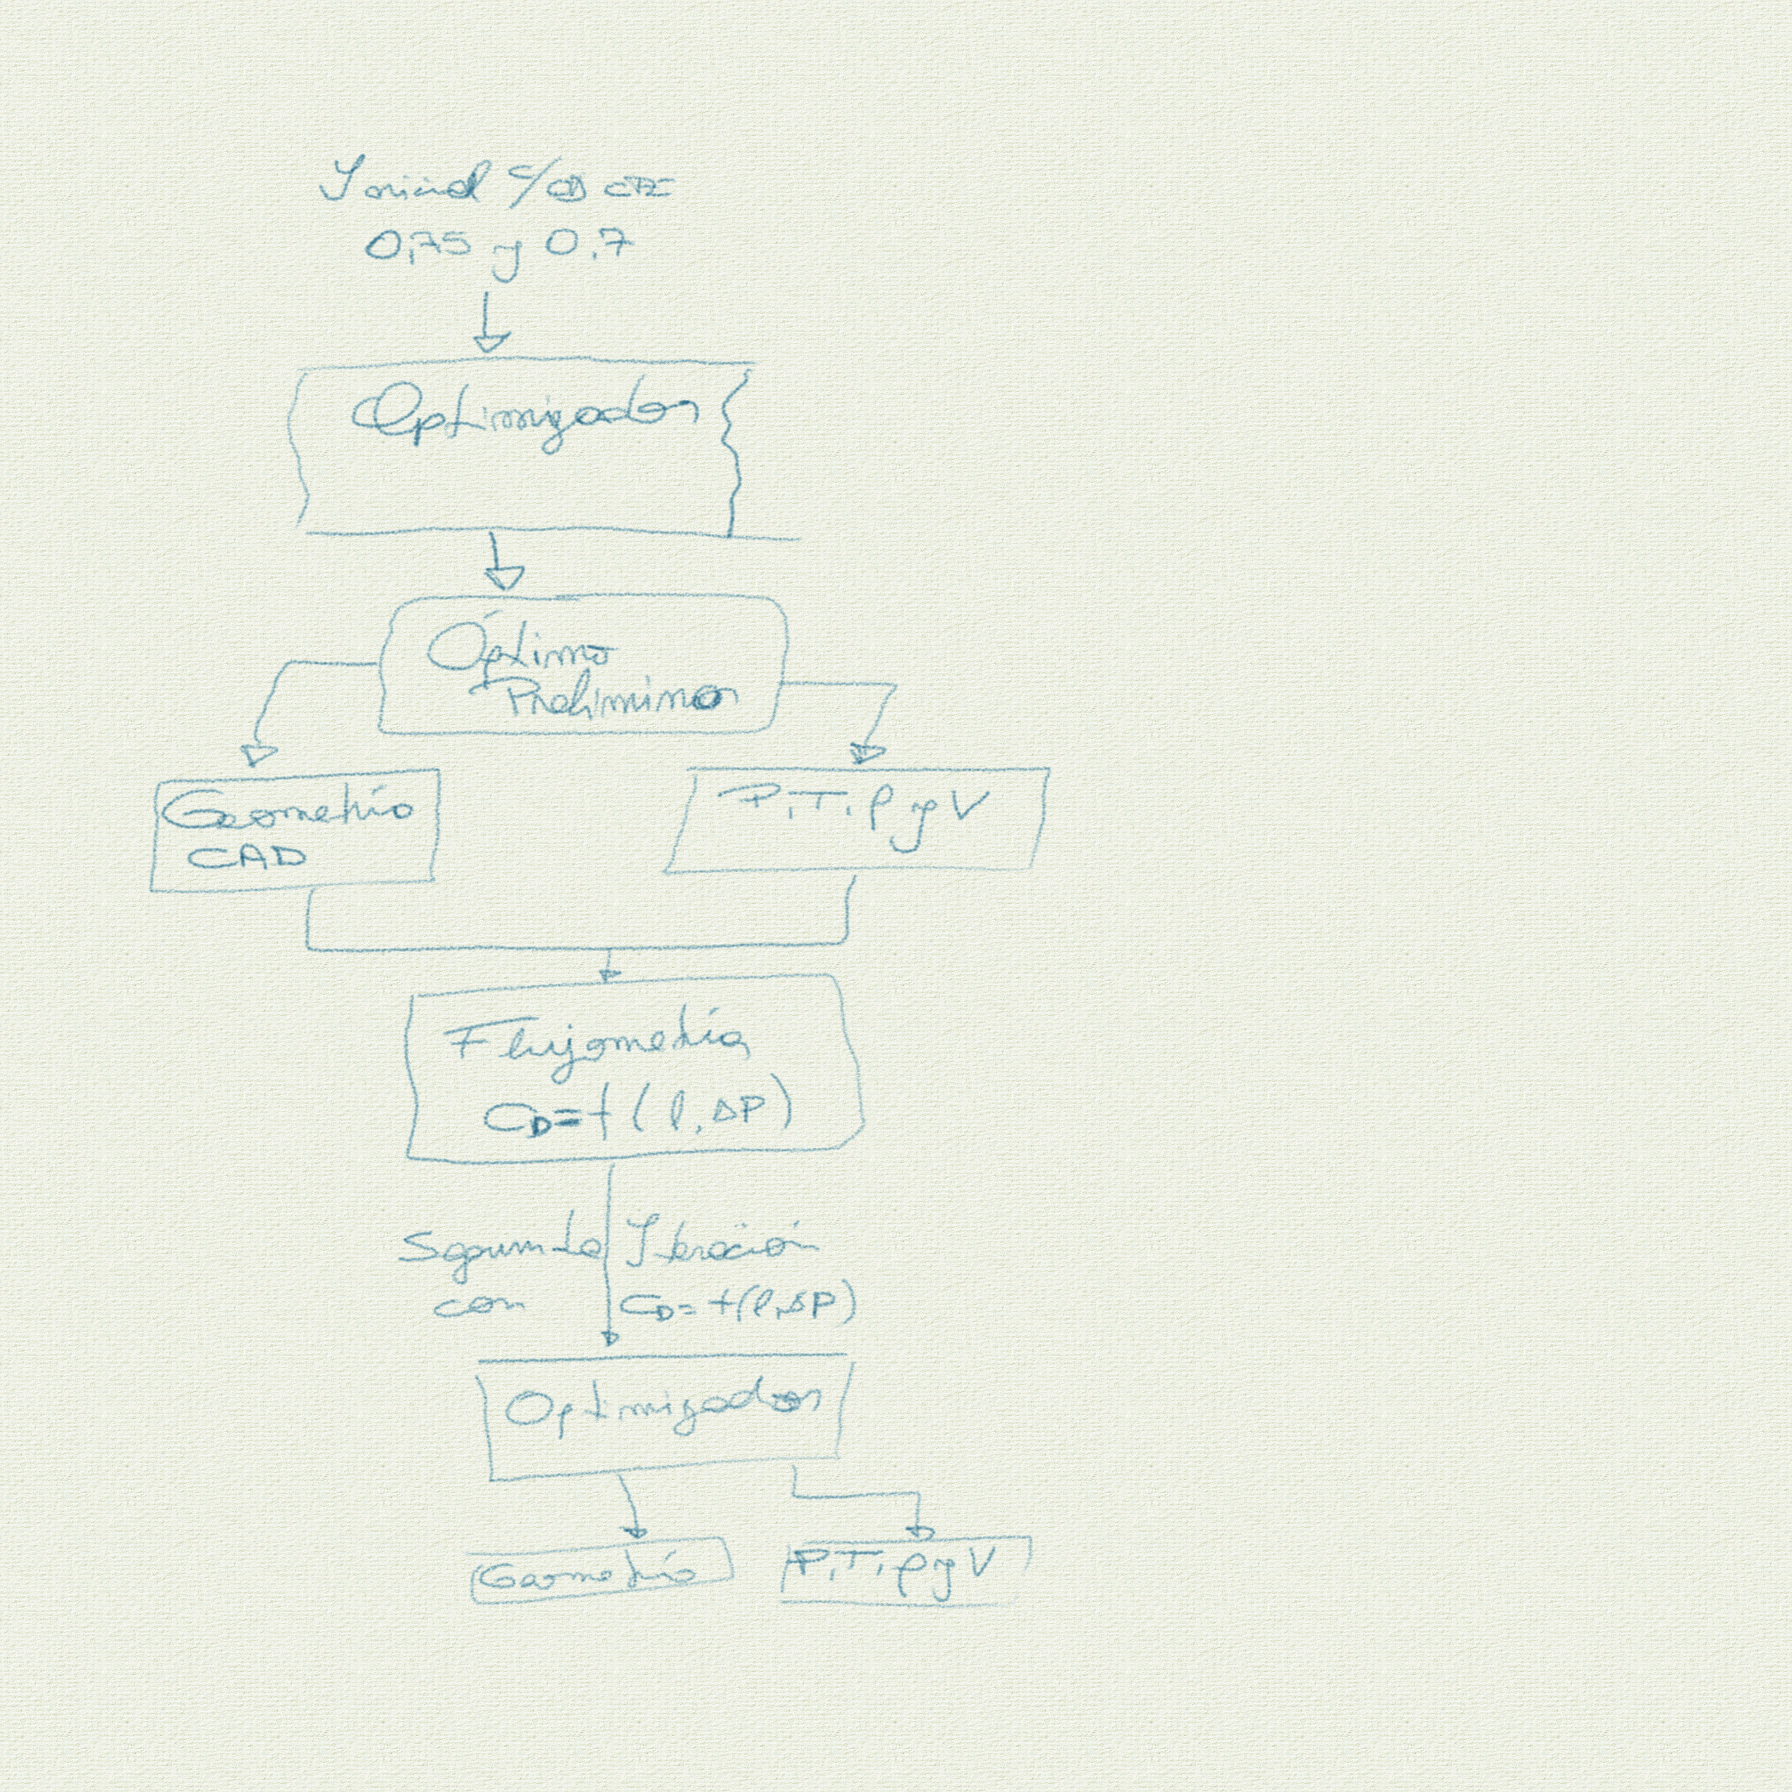 Inicial c/CD CTE
0,75 y 0,7
Optimizador
Óptimo
Preliminar
Geometría
CAD
P, T, ρ y V
Flujometría
CD = f (l, ΔP)
Segunda Iteración
con CD = f(l, ΔP)
Optimizador
Geometría
P, T, ρ y V